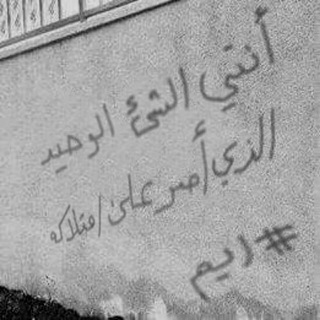 أنتي الشئ الوحيد
الذي أصر على إمتلاكه
#ريم